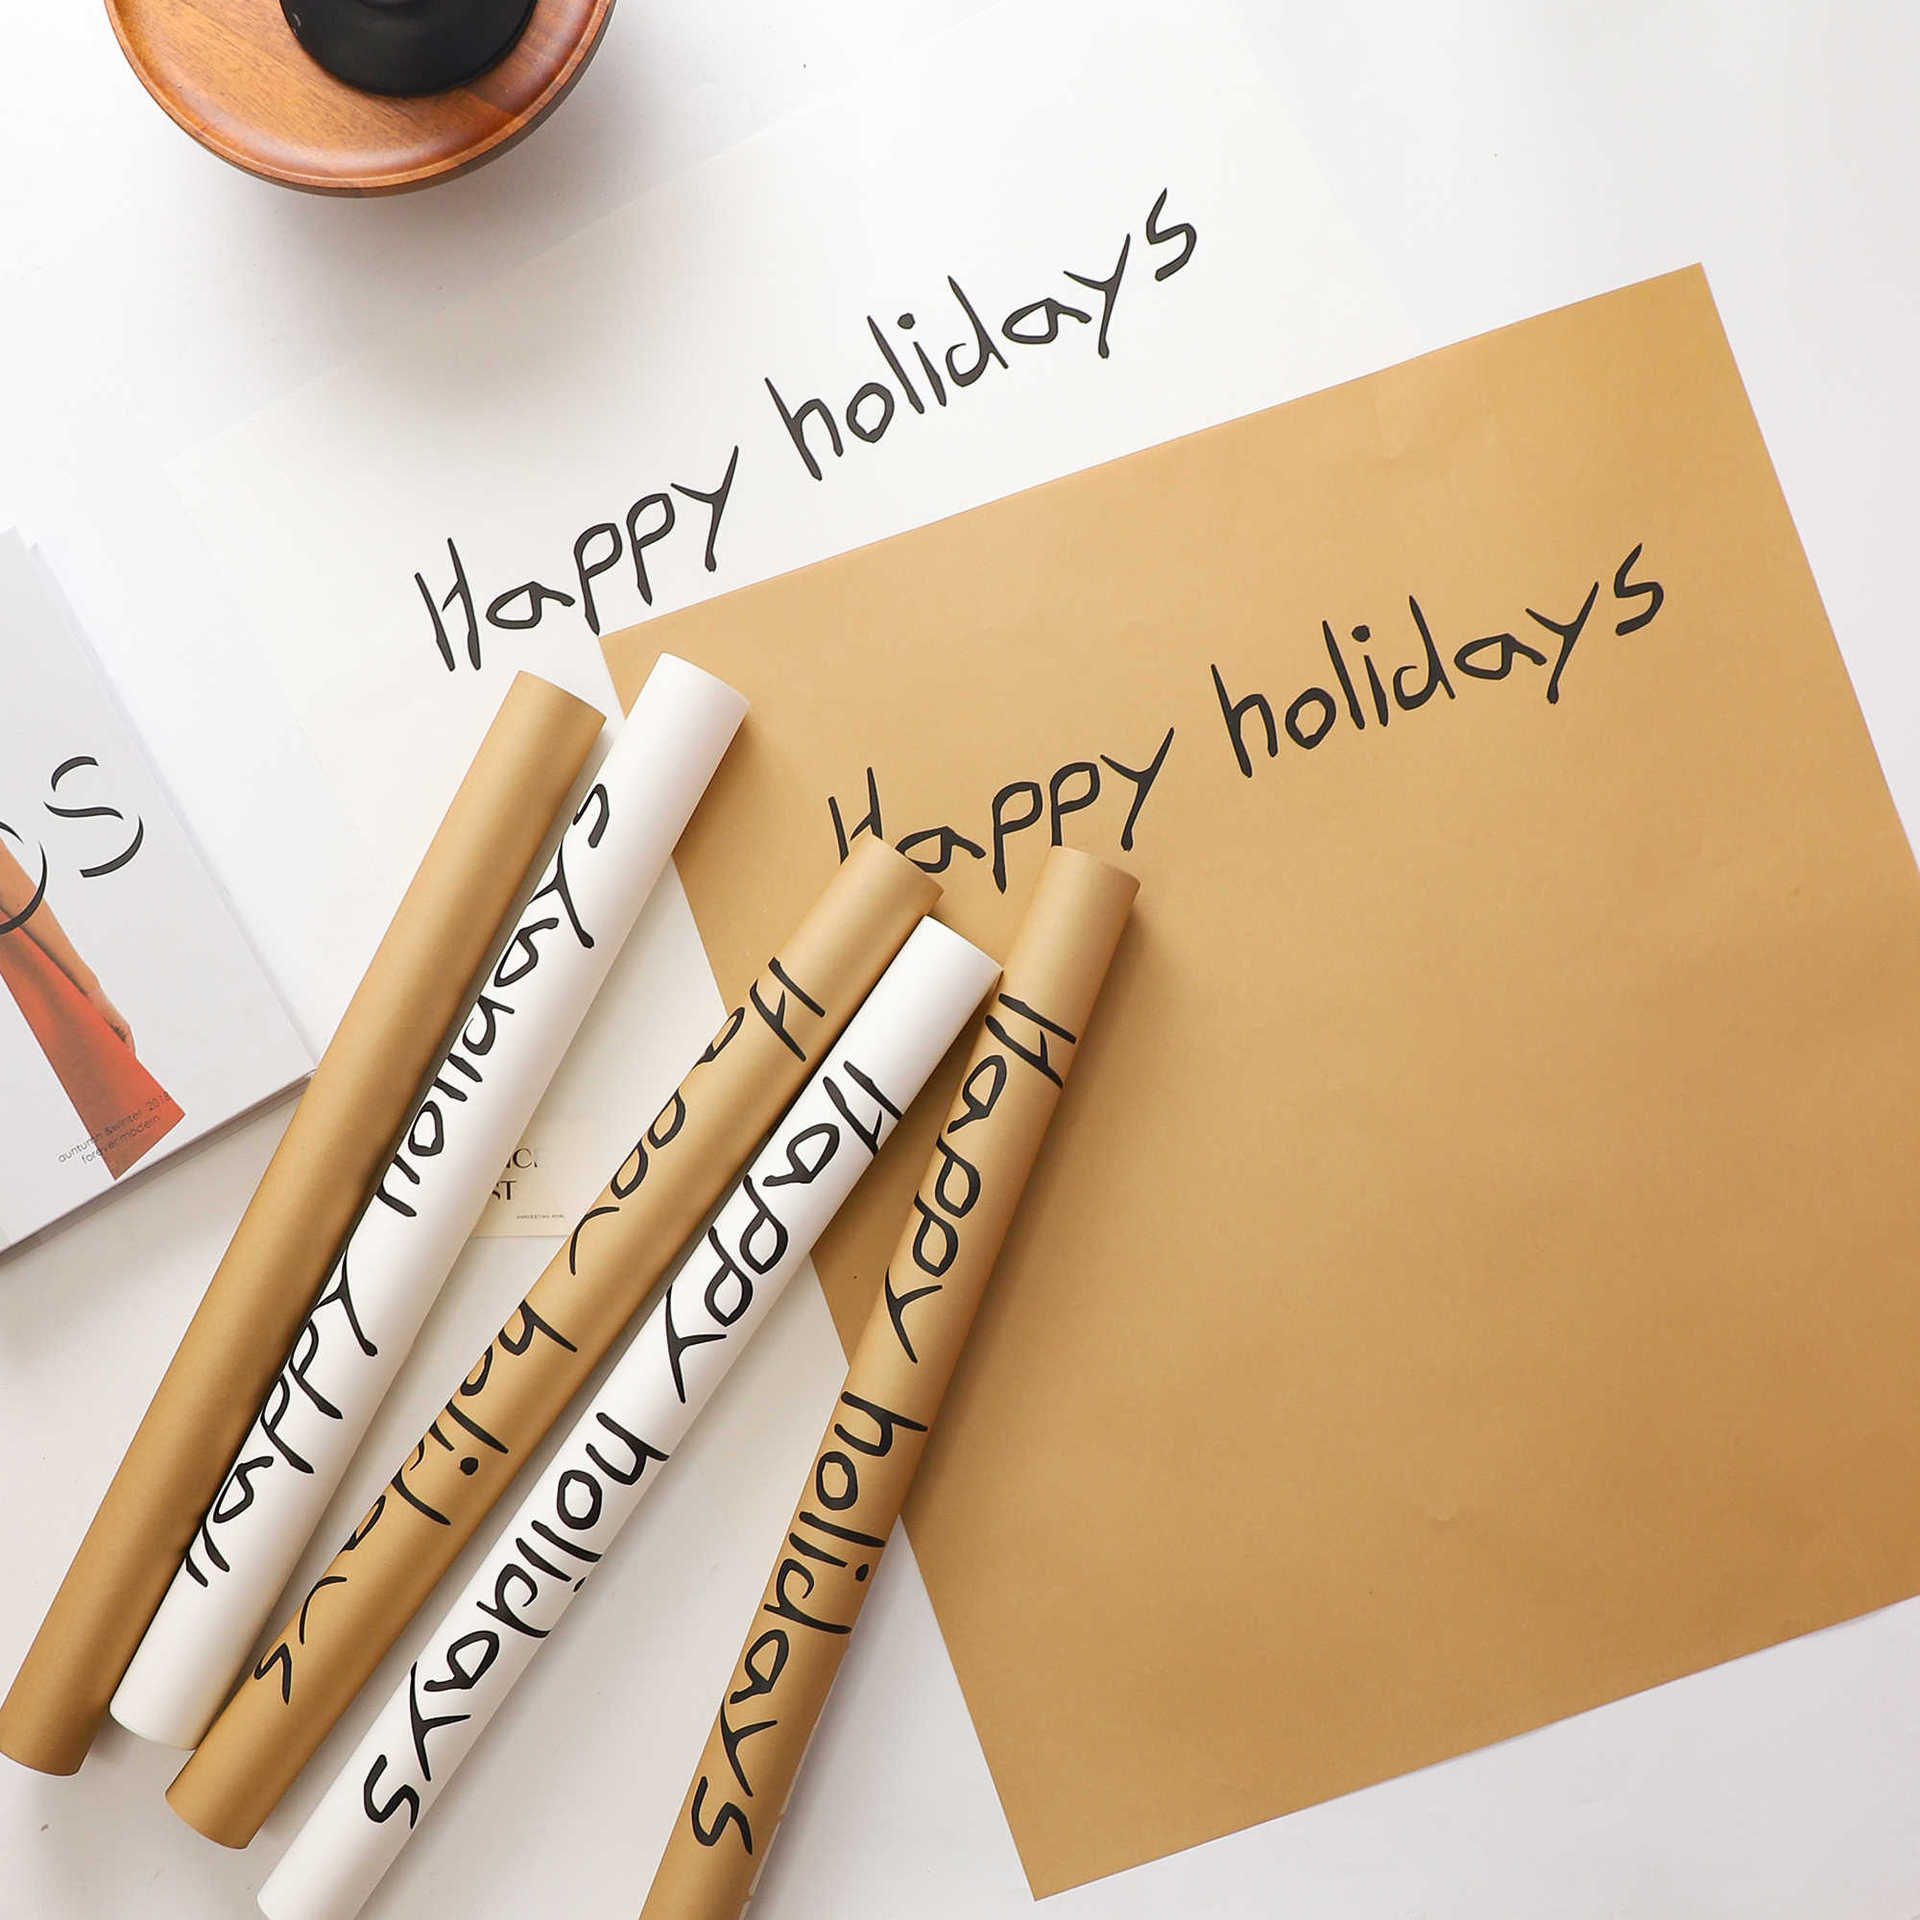 Happy holidays
Happy holidays
Happy holidays
Happy holidays
Happy holidays
Happy holidays
OS
auntumn &winter 201
forever modern
ST